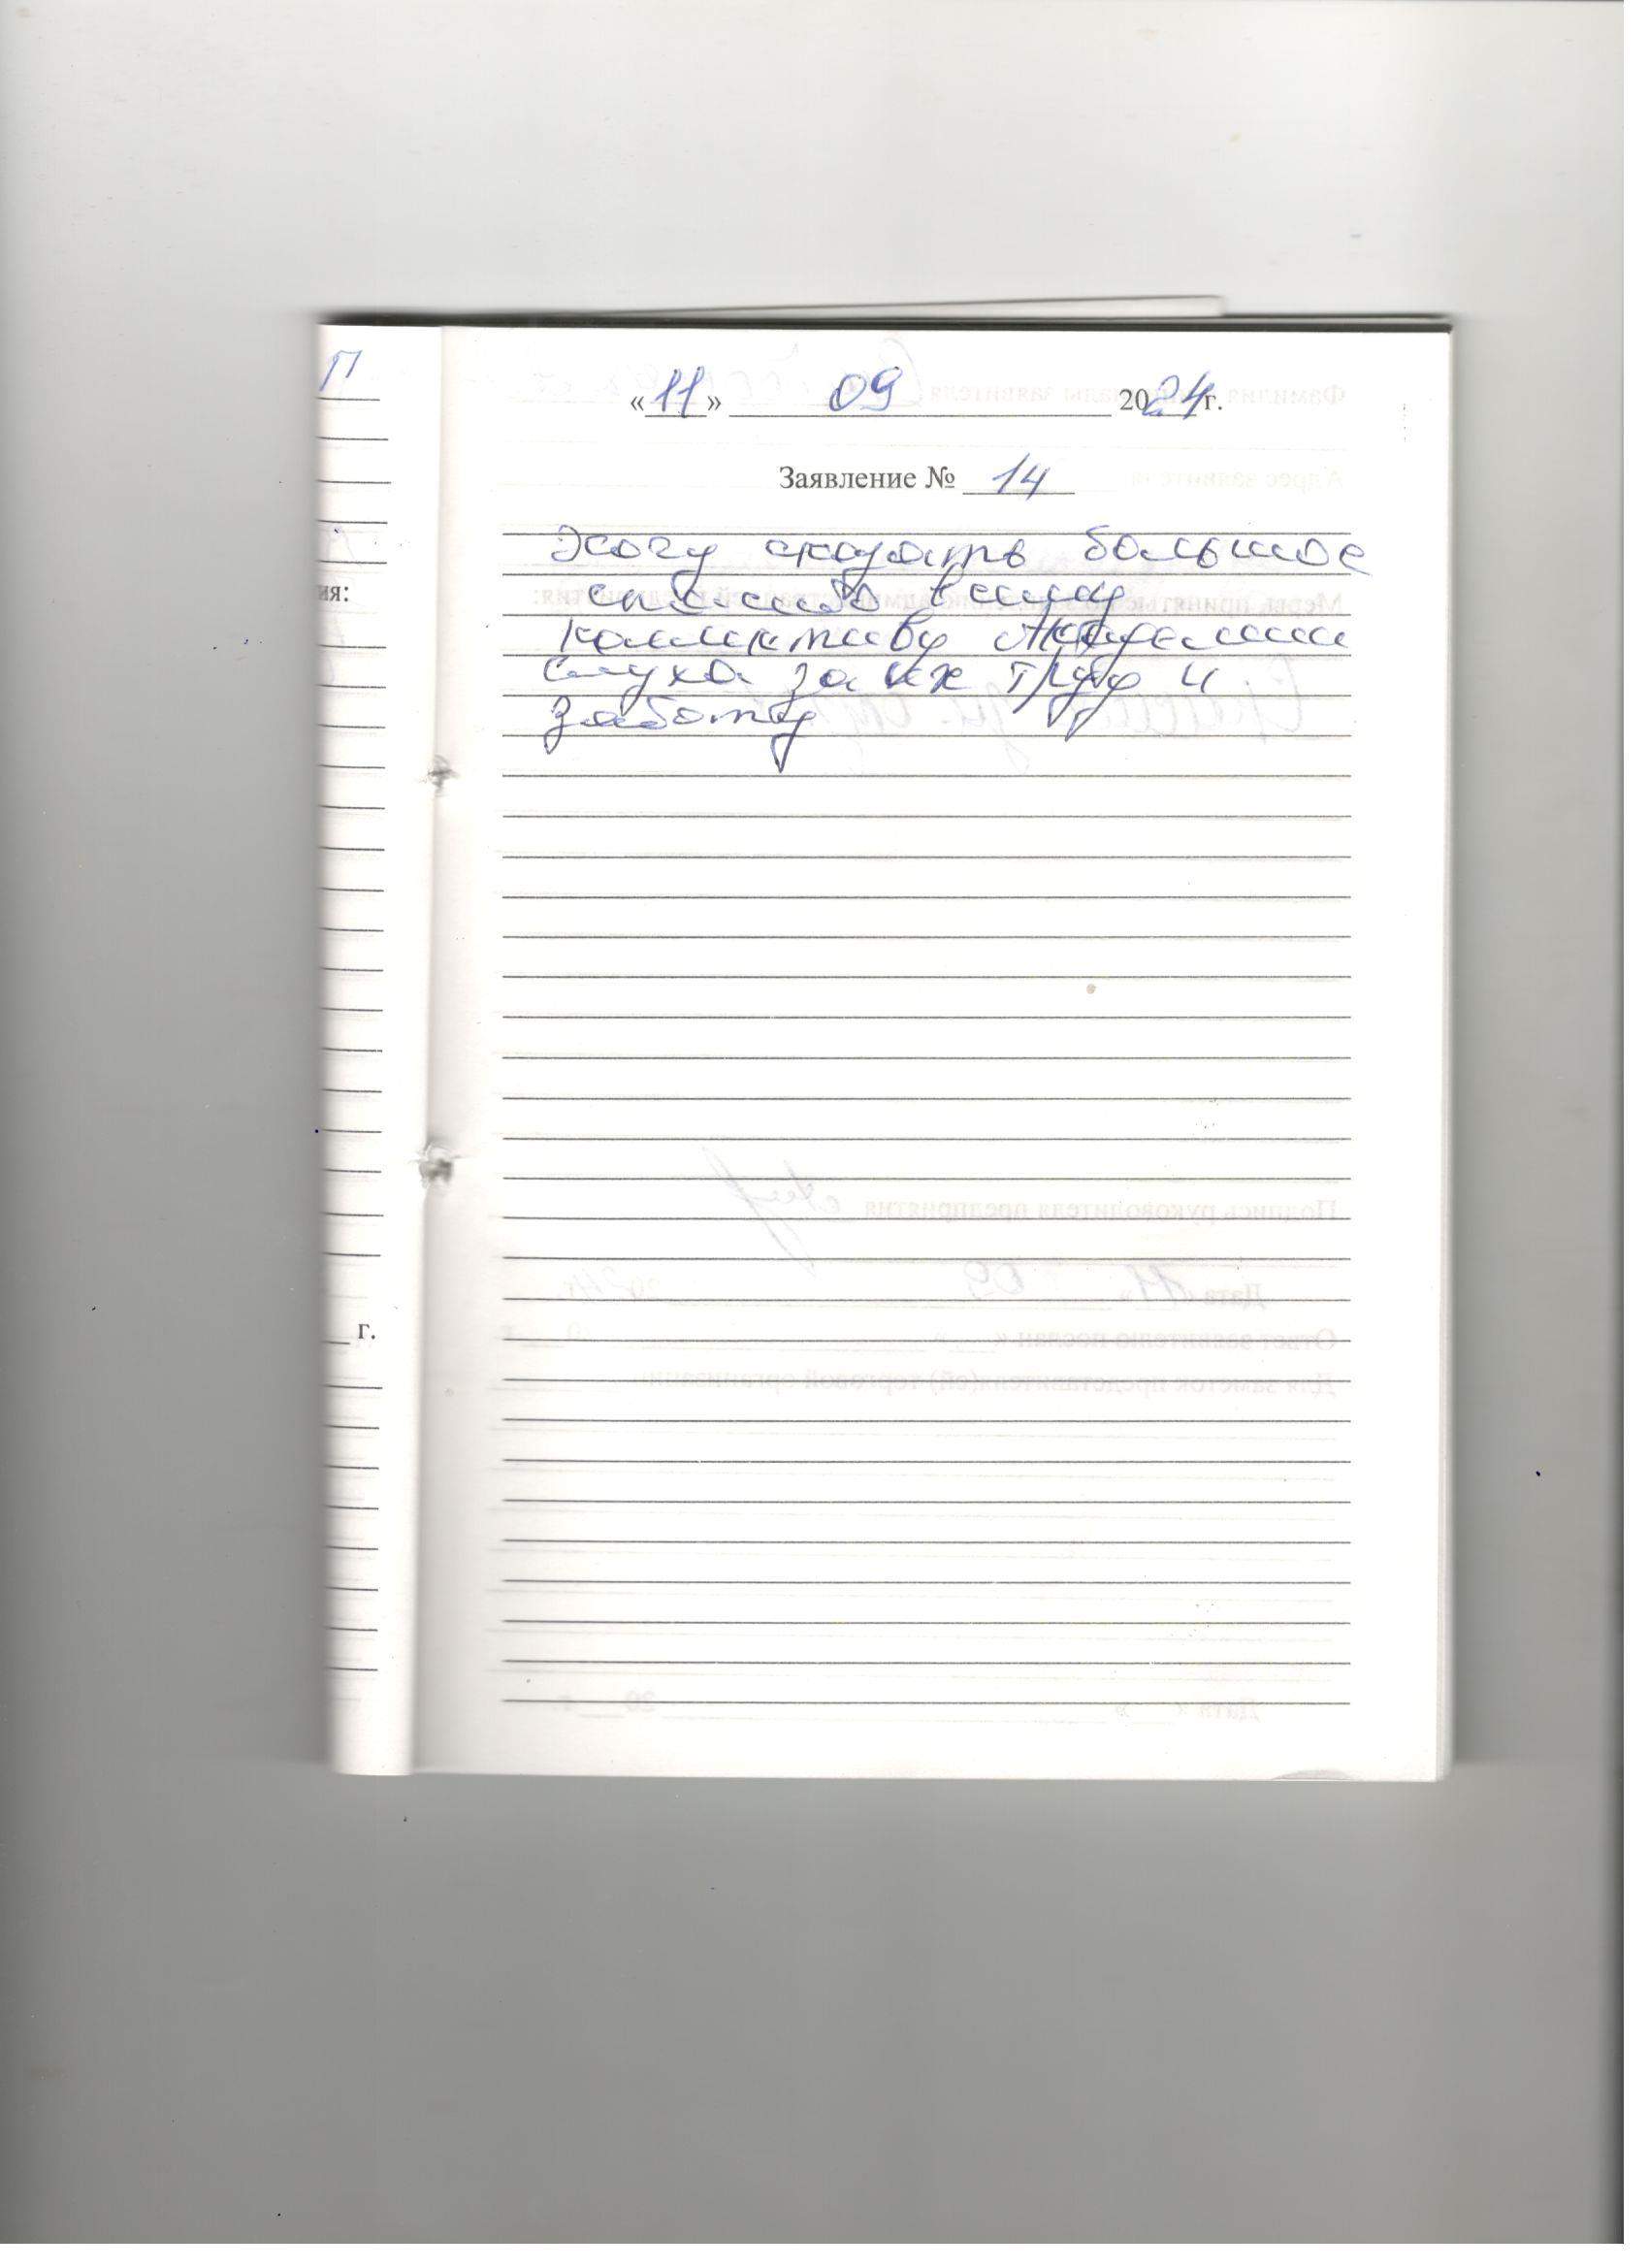 П
ия:
г.
«11» 09 2024 г.
Заявление № 14
Хочу сказать большое
спасибо всему
коллективу Академии
слуха за их труд и
заботу